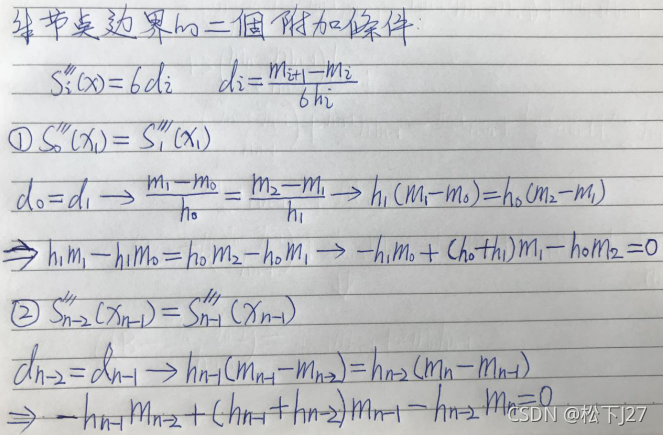 非节点边界的二個附加條件:
S_i'''(x)=6d_i  d_i=\frac{m_{i+1}-m_i}{6h_i}
① S_0'''(x_1)=S_1'''(x_1)
d_0=d_1 → \frac{m_1-m_0}{h_0}=\frac{m_2-m_1}{h_1} → h_1(m_1-m_0)=h_0(m_2-m_1)
⇒ h_1m_1-h_1m_0=h_0m_2-h_0m_1 → -h_1m_0+(h_0+h_1)m_1-h_0m_2=0
② S_{n-2}'''(x_{n-1})=S_{n-1}'''(x_{n-1})
d_{n-2}=d_{n-1} → h_{n-1}(m_{n-1}-m_{n-2})=h_{n-2}(m_n-m_{n-1})
⇒ -h_{n-1}m_{n-2}+(h_{n-1}+h_{n-2})m_{n-1}-h_{n-2}m_n=0
CSDN @松下J27